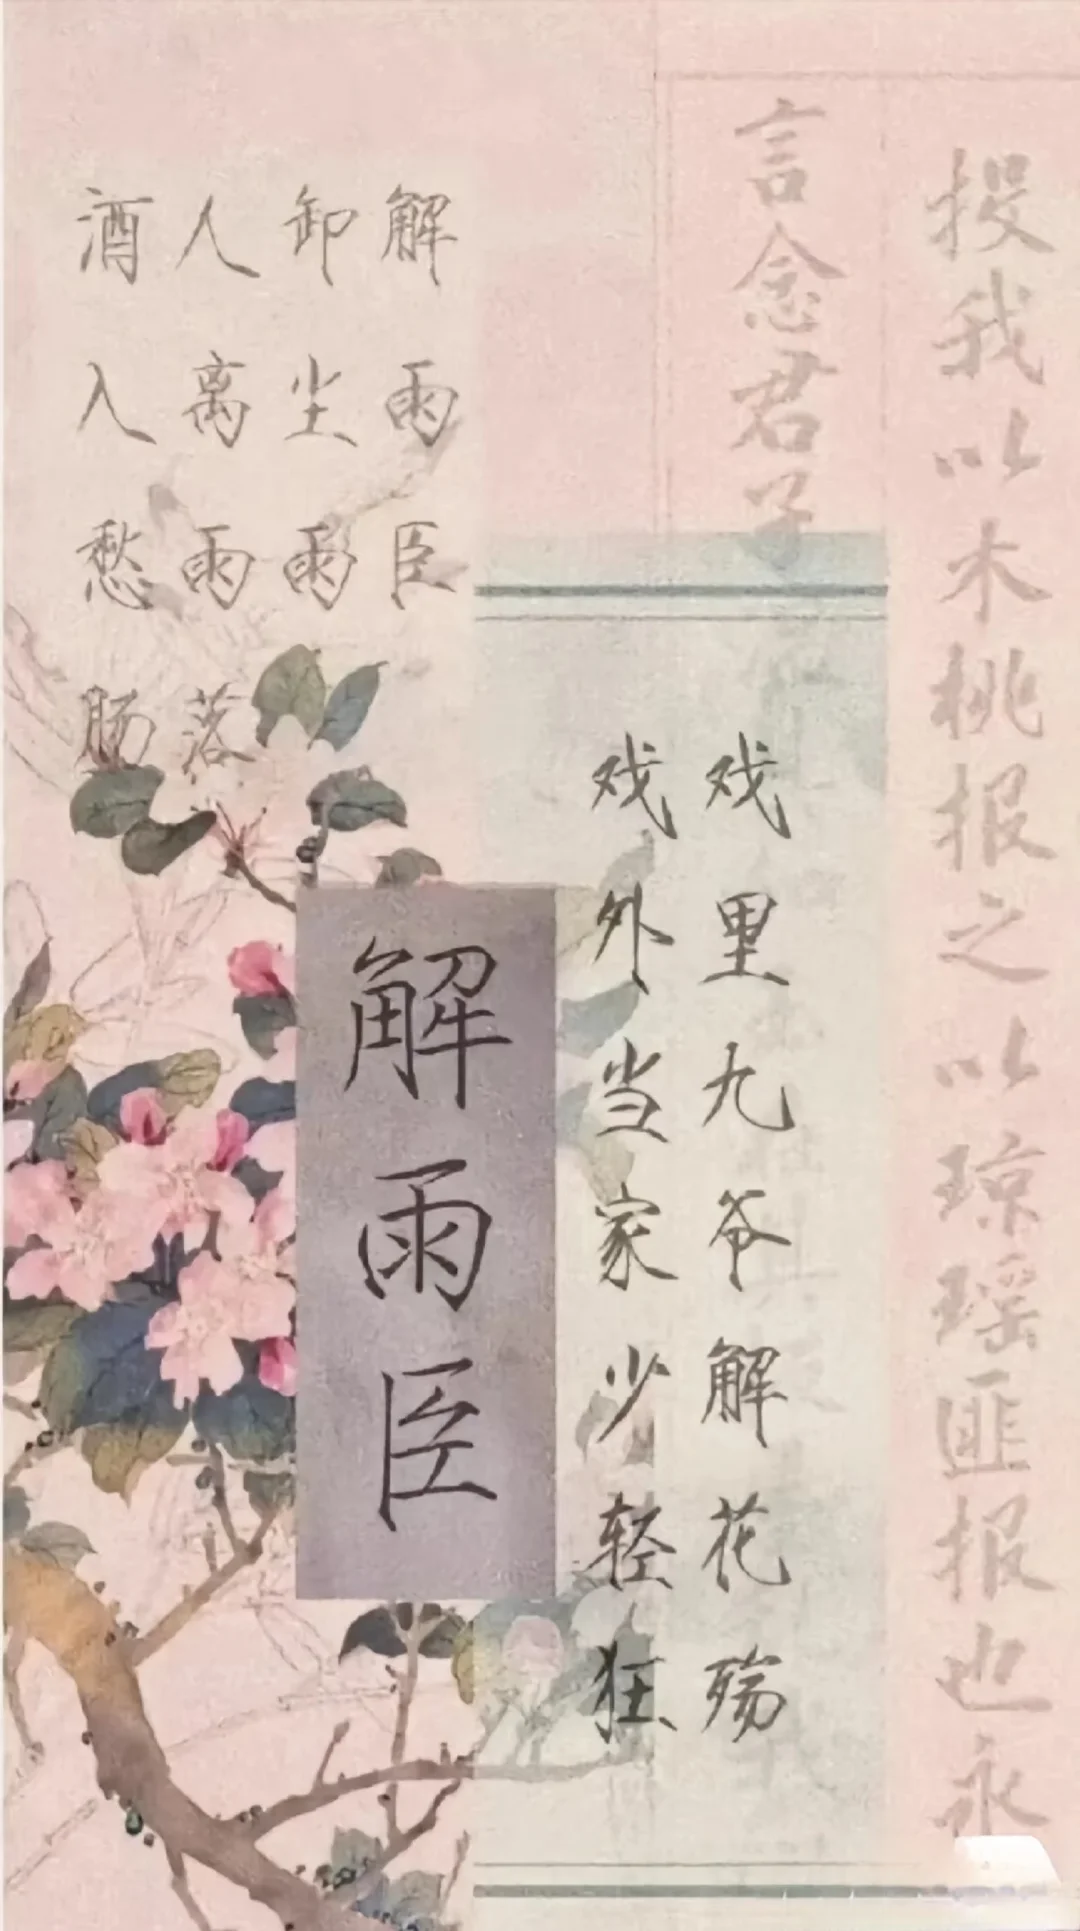 投我以木桃报之以琼瑶匪报也永
言念君子
戏里九爷解花殇
戏外当家少轻狂
解雨臣
卸尘雨
人离雨落
酒入愁肠
解雨臣